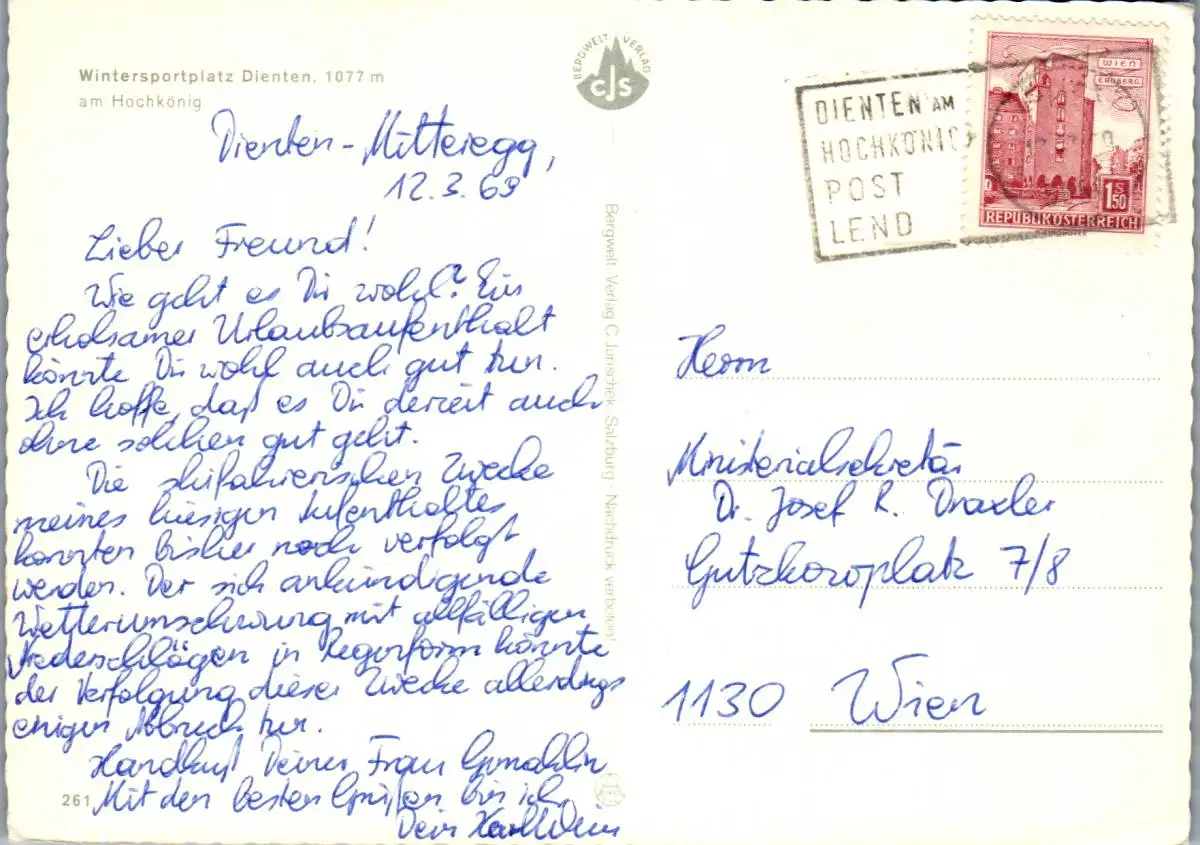 Wintersportplatz Dienten, 1077 m
am Hochkönig
BERGWELT VERLAG
CJS
Dienten-Mitteregg,
12.3.69
Lieber Freund!
Wie geht es Dir wohl? Ein
erholsamer Urlaubsaufenthalt
könnte Dir wohl auch gut tun.
Ich hoffe, daß es Dir derzeit auch
ohne solchen gut geht.
Die skifahrerischen Zwecke
meines hiesigen Aufenthaltes
konnten bisher noch verfolgt
werden. Der sich ankündigende
Wetterumschwung mit allfälligen
Niederschlägen in Regenform könnte
der Verfolgung dieser Zwecke allerdings
einigen Abbruch tun.
Handkuß Deiner Frau Gemahlin
Mit den besten Grüßen bin ich
Dein
261
Bergwelt Verlag C. Jurischek, Salzburg · Nachdruck verboten!
DIENTEN AM
HOCHKÖNIG
POST
LEND
WIEN
ERDBERG
1 S 50
REPUBLIK ÖSTERREICH
Herrn
Ministerialsekretär
Dr. Josef R. Draxler
Gutzkowplatz 7/8
1130 Wien